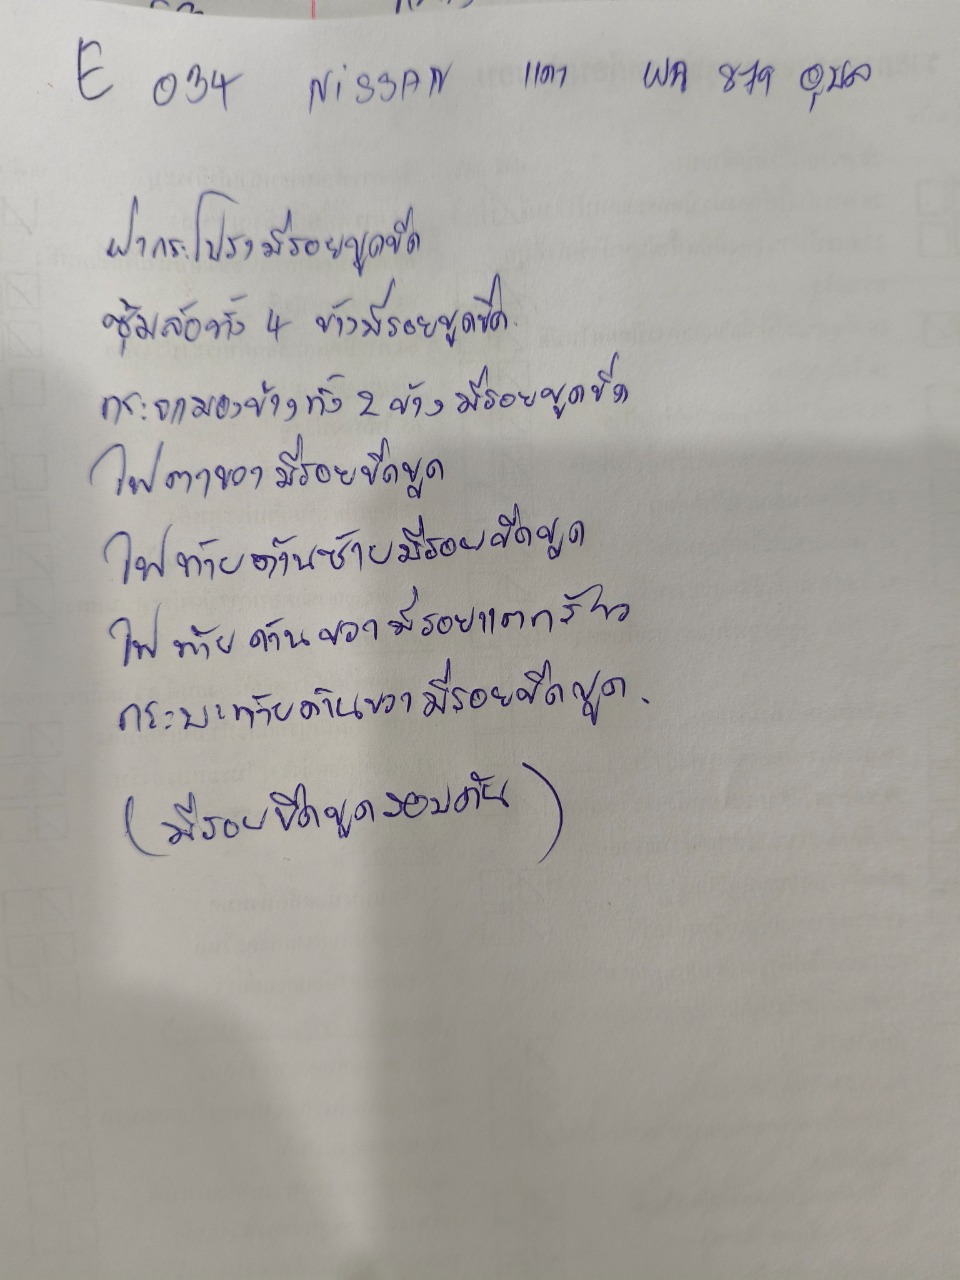 E 034 NiSSAN แดง ผก 879 อุบล
ฝากระโปรงมีรอยขูดขีด
ซุ้มล้อทั้ง 4 ข้างมีรอยขูดขีด
กระจกมองข้างทั้ง 2 ข้าง มีรอยขูดขีด
ไฟตาขวามีรอยขีดขูด
ไฟท้ายด้านซ้ายมีรอยขีดขูด
ไฟท้ายด้านขวามีรอยแตกร้าว
กระบะท้ายด้านขวามีรอยขีดขูด.
(มีรอยขีดขูดรอบคัน)